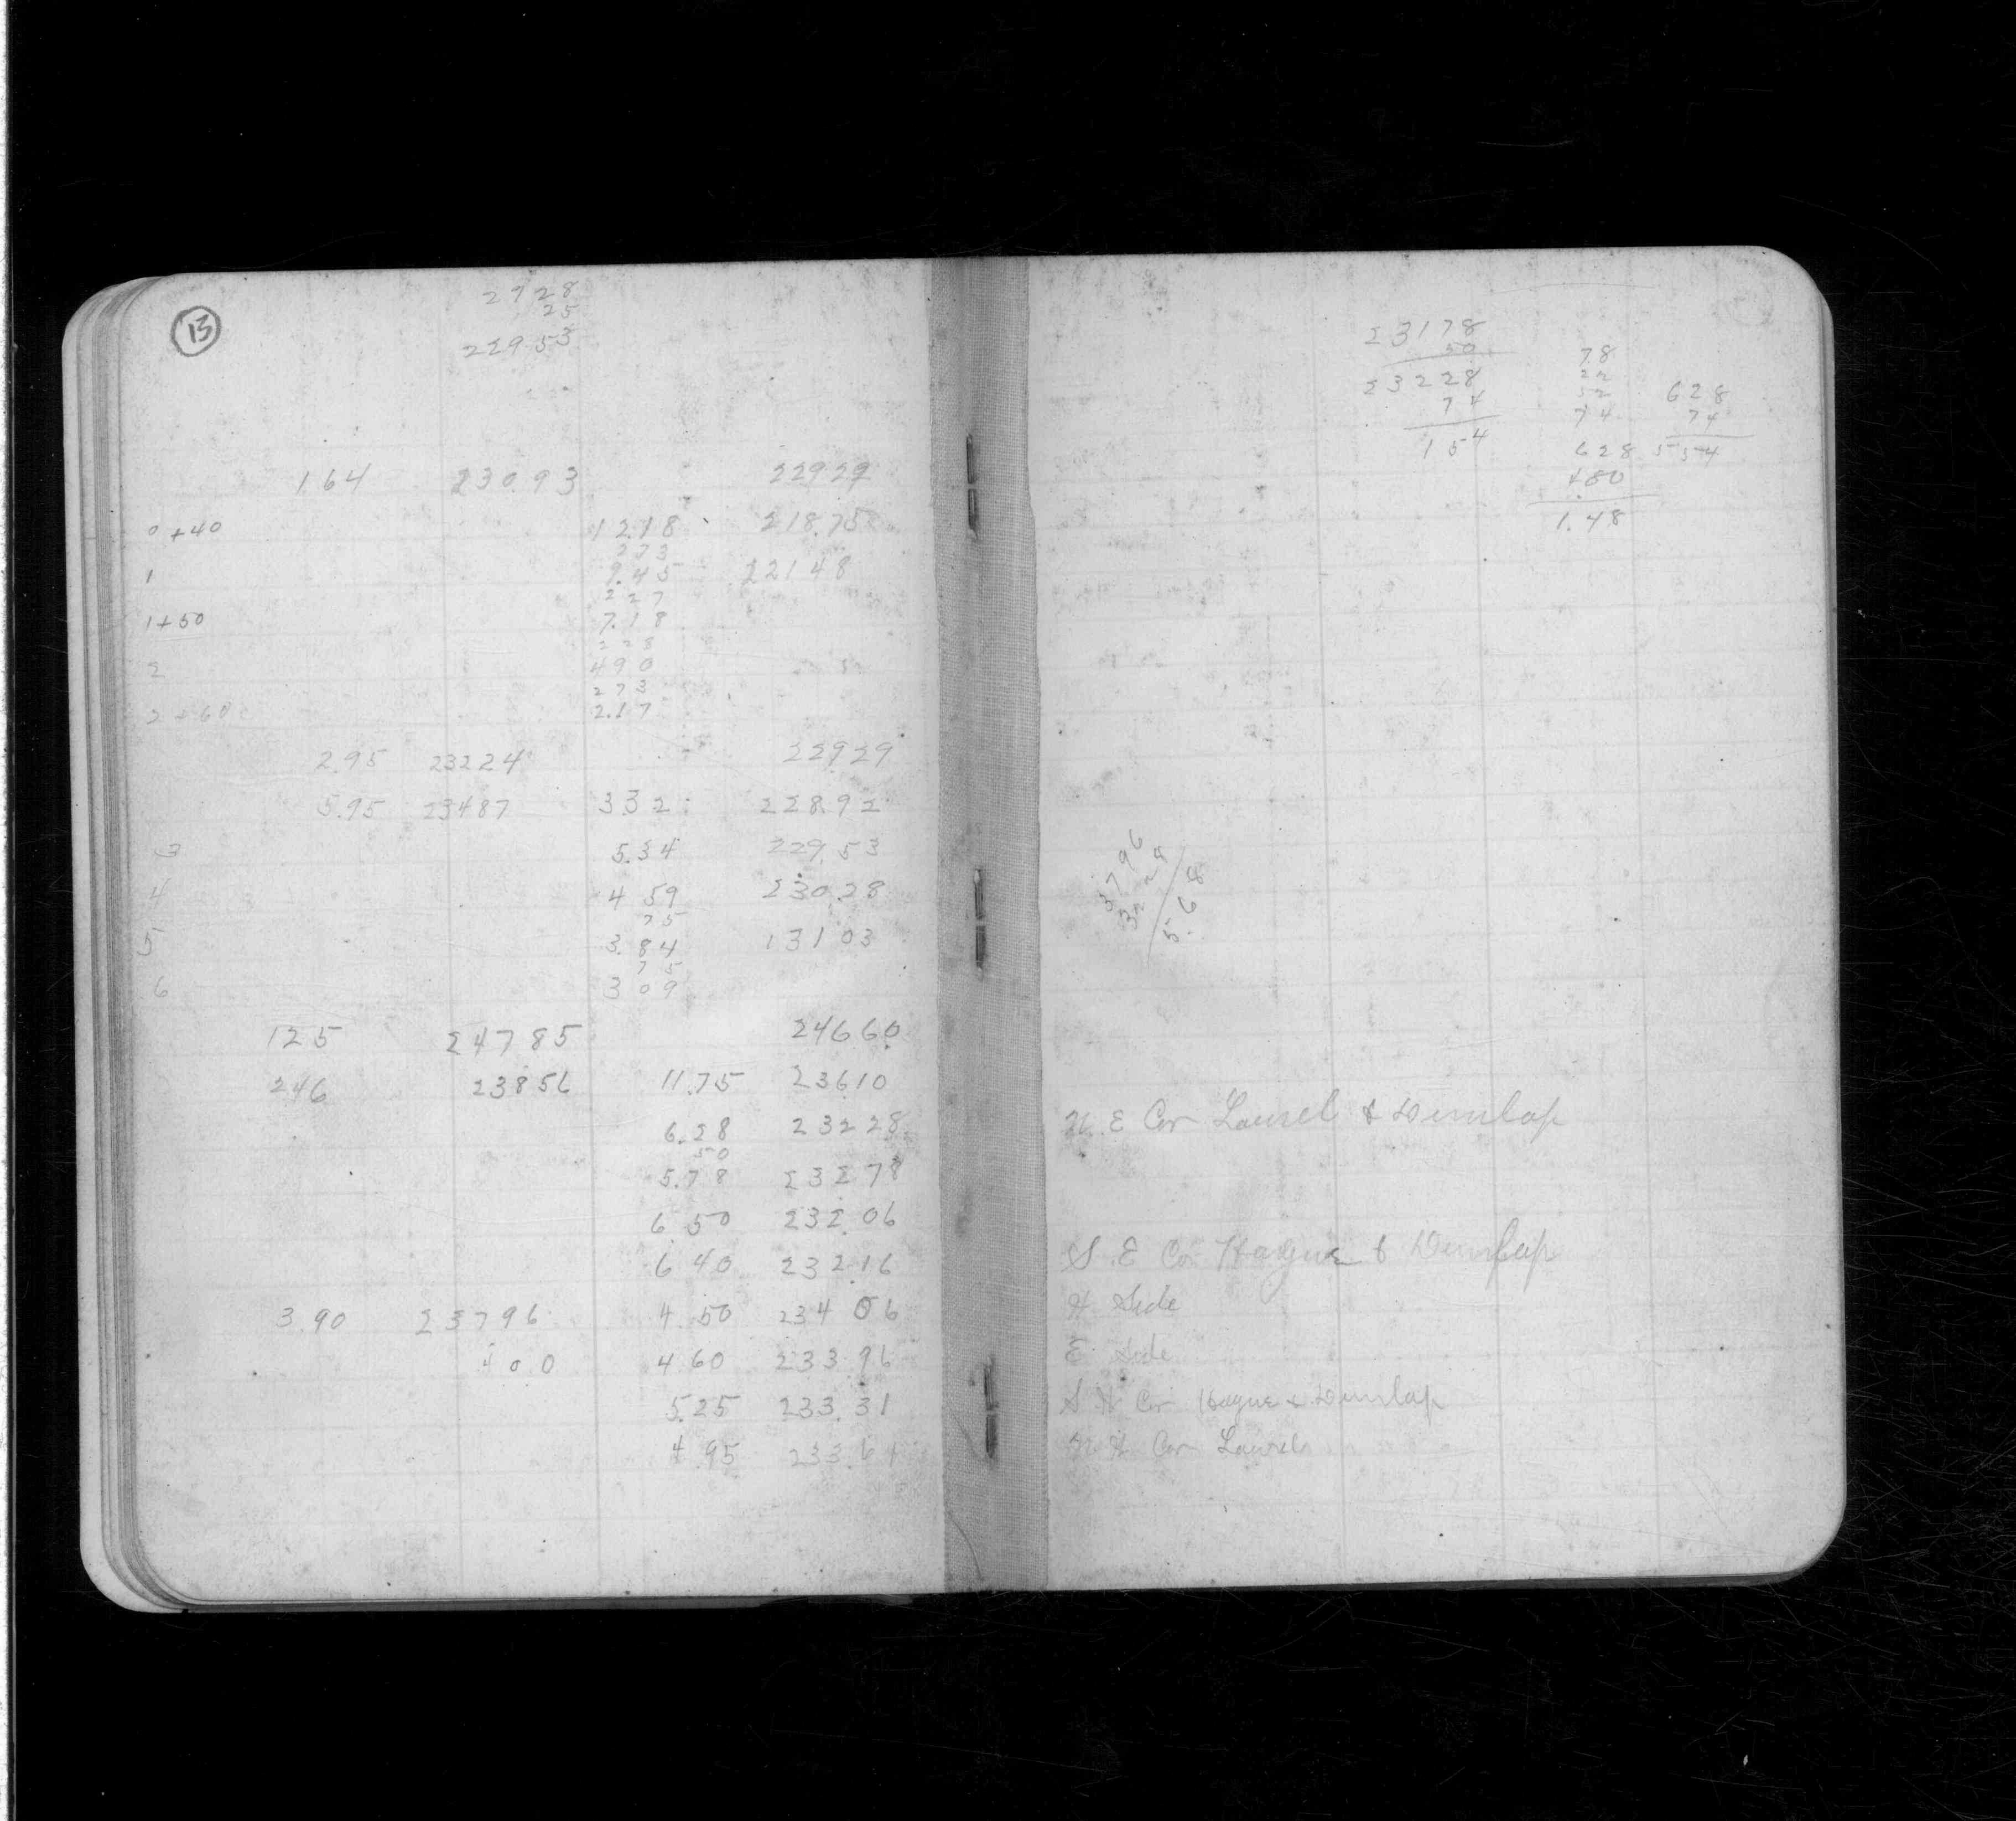 13
2928
25
22953
164 23093 22929
0+40 12.18 218.75
273
1 9.45 22148
227
1+50 7.18
228
2 490
273
2+60 2.17
2.95 23224 22929
5.95 23487 332 228.92
3 5.34 229.53
4 4 59 230.28
75
5 3.84 13103
75
6 309
125 24785 24660
246 23856 11.75 23610
6.28 23228
50
5.78 23278
6 50 232.06
6 40 232.16
3.90 23796 4.50 234 06
400 4 60 233 96
5.25 233.31
4.95 233.61
23178
50
23228
74
154
78
22
52
74
628
480
1.48
628
74
554
3796
3228
5.68
N. E Cor Laurel & Dunlap
S. E Cor Hague & Dunlap
W Side
E Side
S W Cor Hague & Dunlap
N W Cor Laurel